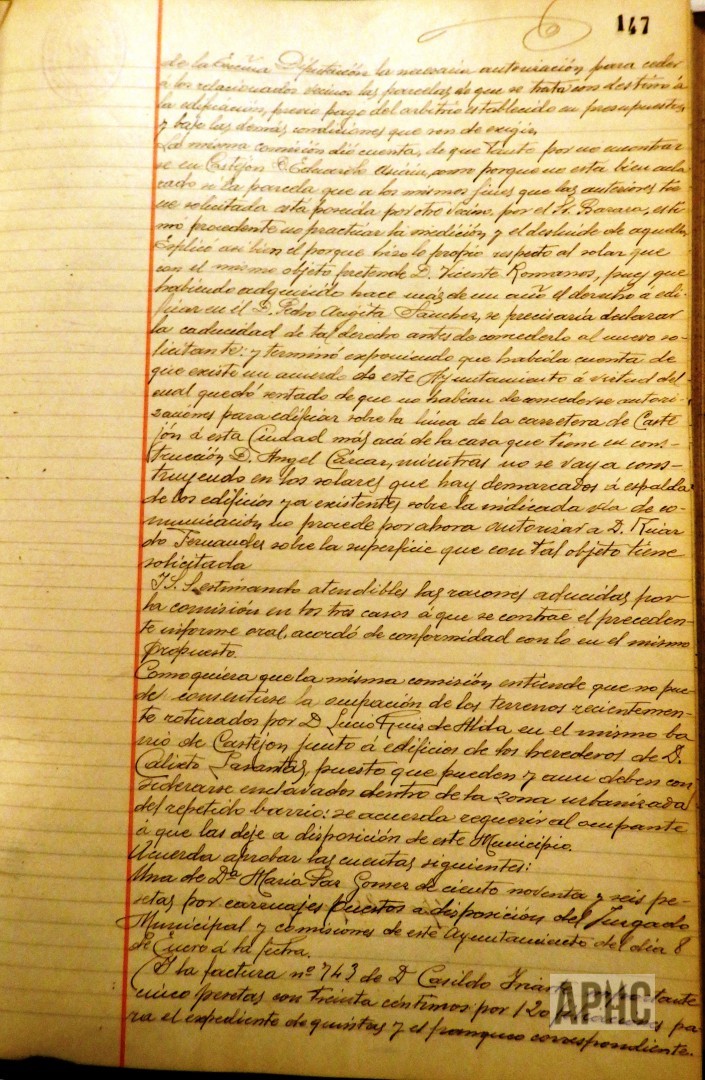 147
de la Excma Diputación la necesaria autorización para ceder
á los relacionados vecinos las parcelas de que se trata con destino á
la edificación, previo pago del arbitrio establecido en presupuestos,
y bajo las demás condiciones que son de exigir.
La misma comisión dió cuenta, de que tanto por no encontrar
se en Castejón D Eduardo como porque no esta bien acla
rado si la parcela que a los mismos fines que las anteriores tie
ne solicitada está poseida por otro vecino, por el Sr. esti
mó procedente no practicar la medición y el deslinde de aquella.
Explicó asi bien el porque hizo lo propio respecto al solar que
con el mismo objeto pretende D. Vicente Romanos, pues que
habiendo adquirido hace más de un año el derecho á edi
ficar en él D. Pedro Angita Sanchez, se precisaría declarar
la caducidad de tal derecho antes de concederlo al nuevo so-
licitante: y terminó exponiendo que habida cuenta de
que existe un acuerdo de este Ayuntamiento á virtud del
cual quedó sentado de que no habian de concederse autori-
zaciones para edificar sobre la línea de la carretera de Caste
jón á esta Ciudad más acá de la casa que tiene en cons-
trucción D. Angel Carcar, mientras no se vaya cons-
truyendo en los solares que hay demarcados á espalda
de los edificios ya existentes sobre la indicada vía de co-
municación, no procede por ahora autorizar a D. Ricar
do Fernandez sobre la superficie que con tal objeto tiene
solicitada
Y S. S. estimando atendibles las razones aducidas por
la comisión en los tres casos á que se contrae el preceden-
te informe oral, acordó de conformidad con lo en el mismo
propuesto.
Como quiera que la misma comisión, entiende que no pue
de consentirse la ocupación de los terrenos recientemen-
te roturados por D Lucio Ruiz de Alda en el mismo ba
rrio de Castejon junto á edificios de los herederos de D.
Calixto puesto que pueden y aun deben con
siderarse enclavados dentro de la zona urbanizada
del repetido barrio: se acuerda requerir al ocupante
á que las deje a disposición de este Municipio.
Acuerda aprobar las cuentas siguientes:
Una de Dª Maria Paz Gomez de ciento noventa y seis pe-
setas por carruajes puestos a disposición del Juzgado
Municipal y comisiones de este Ayuntamiento del día 8
de Enero á la fecha.
Y la factura nº 743 de D Casildo Iriarte importante
cinco pesetas con treinta céntimos por 120 pa-
ra el expediente de quintas y el franqueo correspondiente.
APHC